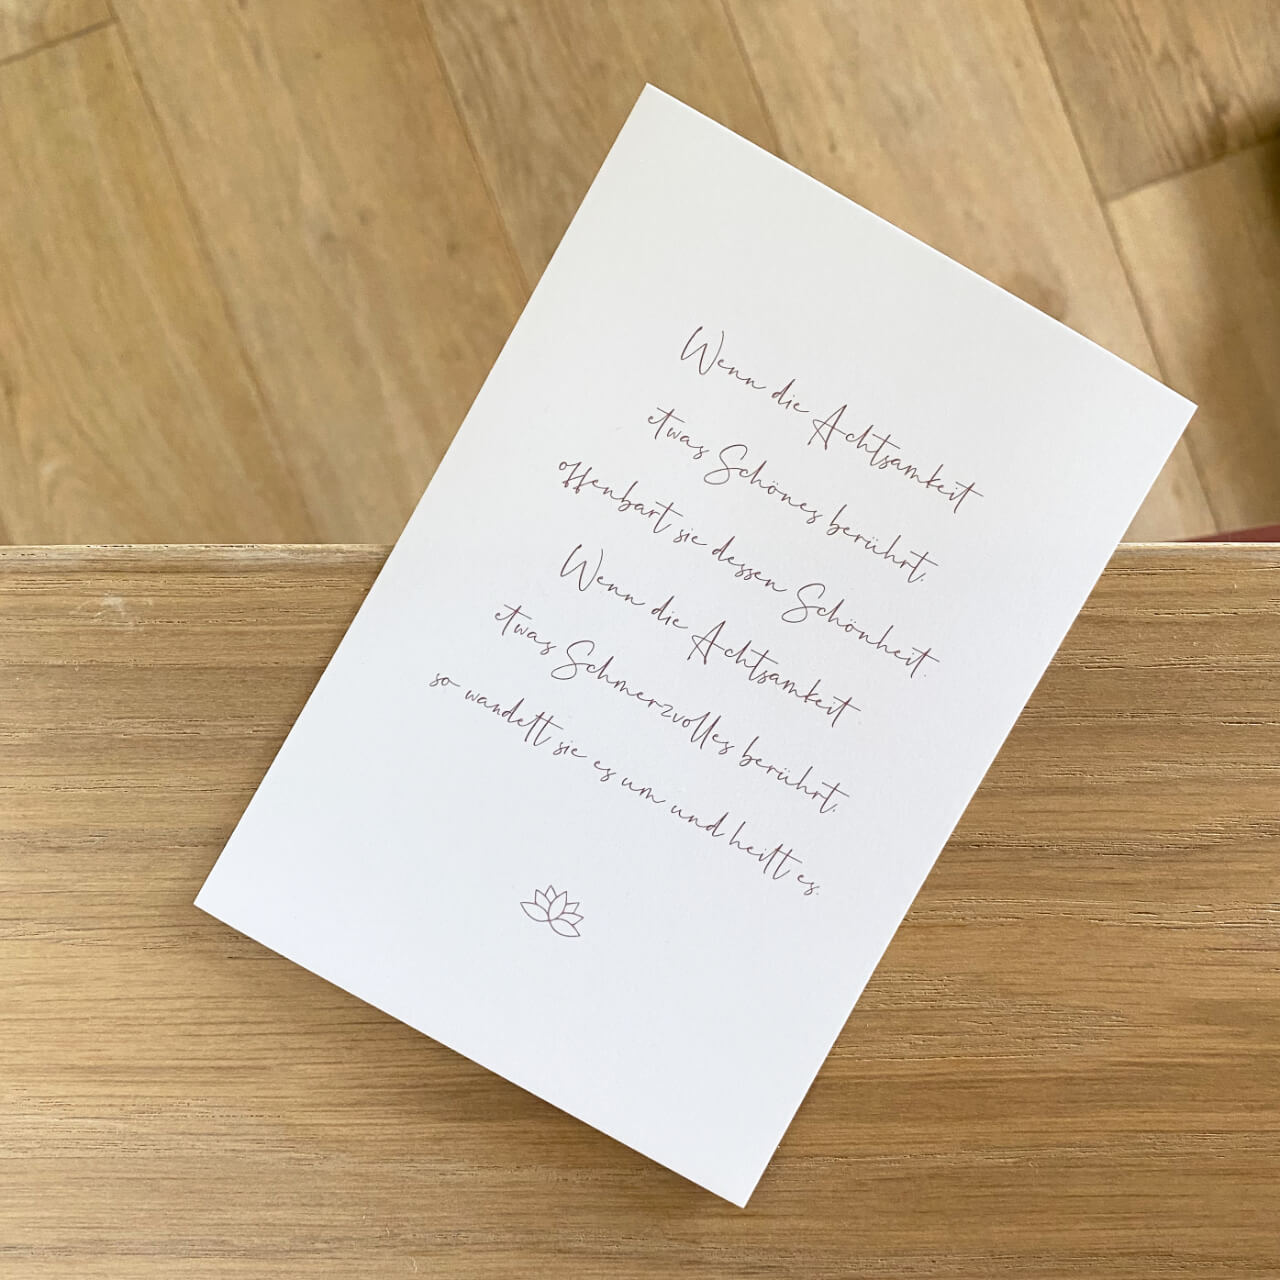 Wenn die Achtsamkeit
etwas Schönes berührt,
offenbart sie dessen Schönheit.
Wenn die Achtsamkeit
etwas Schmerzvolles berührt,
so wandelt sie es um und heilt es.